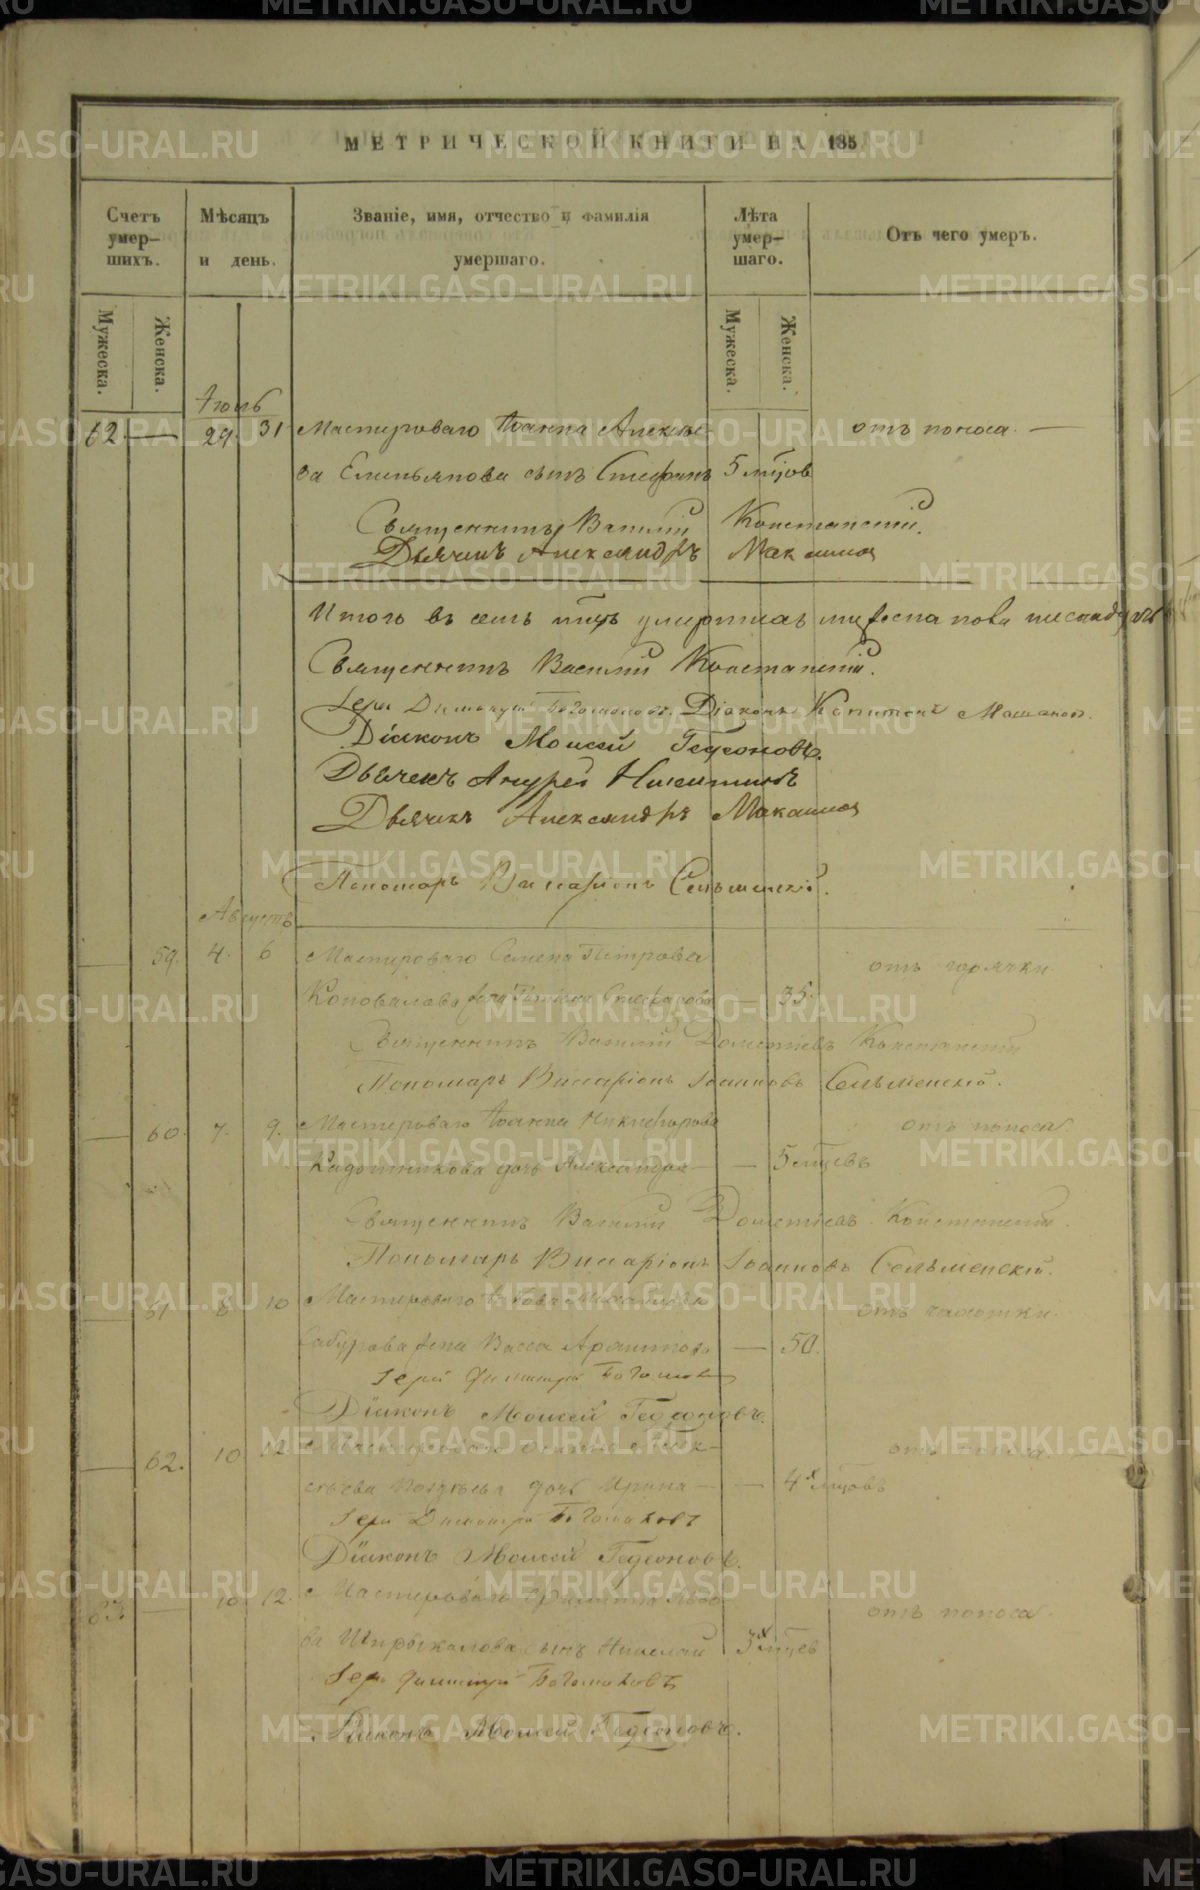 МЕТРИЧЕСКОЙ КНИГИ НА 185
Счетъ умер– шихъ.
Мѣсяцъ и день.
Званіе, имя, отчество и фамилія умершаго.
Лѣта умер– шаго.
Отъ чего умеръ.
Мужеска.
Женска.
Мужеска.
Женска.
Іюль
62 — 29 31 Мастероваго Іоанна Алексѣе- отъ поноса. —
ва Емельянова сынъ Стефанъ 5 мцов
Священникъ Василій Констанскій.
Дьячекъ Александръ Максимов
Итого въ семъ мцѣ умершихъ мужеска пола
Священникъ Василій Констанскій.
Іерей Димитрій Богомоловъ. Діаконъ Капитонъ
Діаконъ Моисей Гедеоновъ.
Дьячекъ Андрей Никитинъ
Дьячекъ Александръ Максимов
Пономарь Виссаріонъ Сельменскій.
Августъ
— 59. 4. 6 Мастероваго Семена Петрова отъ горячки.
Коновалова жена Стефанова — 35.
Священникъ Василій Дометіевъ Констанскій
Пономарь Виссаріонъ Іоанновъ Сельменскій.
— 60. 7. 9. Мастероваго Іоанна Никифорова отъ поноса.
Кадошникова дочь Александра — — 5 мцевъ
Священникъ Василій Дометіевъ Констанскій.
Пономарь Виссаріонъ Іоанновъ Сельменскій.
— 61 8 10 Мастероваго отъ чахотки.
Сабурова жена Васса — 50.
Іерей Димитрій Богомолов
Діаконъ Моисей Гедеоновъ.
— 62. 10 12. Мастероваго отъ поноса. —
дочь Ирина — — 4х мцовъ
Іерей Димитрій Богомоловъ
Діаконъ Моисей Гедеоновъ.
63. — 10 12. Мастероваго Филиппа отъ поноса.
ва сынъ Николай 3х мцев
Іерей Димитрій Богомоловъ
Діаконъ Моисей Гедеоновъ.
METRIKI.GASO-URAL.RU